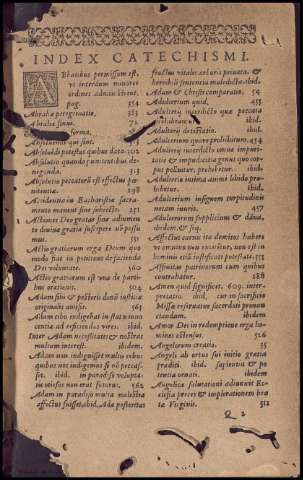 INDEX CATECHISMI.
Abbatibus permissum est,
vt interdum minores
ordines administrent.
pag. 354
Abrahæ peregrinatio, 353
Abrahæ sinus, 72
forma,
Absolutionis qui sint, 313
Absoluendi potestas quibus data. 302
Absolutio quando pœnitentibus de-
neganda. 313
Absoluto peccatorū est effectus pœ-
nitentiæ. 298
Accidentia in Eucharistiæ sacra-
mento manent sine subiecto.
Actiones Deo gratas sine adiumen
to diuinæ gratiæ suscipere nō possu
mus. 551
Actio gratiarum erga Deum quo
modo fiat in petitione defacienda
Dei voluntate. 560
Actio gratiarum est vna de parti-
bus orationis. 504
Adam sibi & posteris donū iustitiæ
originalis amisit, 563
Adam cibo indigebat in statu inno
centiæ ad reficiendas vires. ibid.
Inter Adam necessitates & nostras
multum interest. ibidem.
Adam non indiguisset multis rebus
quibus nos indigemus si nō peccas-
set. ibid. in paradiso volupta-
tis otiosus non erat futurus. 562
Adam in paradiso multa molestia
affectus fuisset. ibid. Ada posteritas
fructus vitalis arboris priuata, &
horribili sententia maledicta. ibid.
Adam & Christi comparatio. 54
Adulterium quid, 455
Adulterij interdicto quæ peccata
prohibeantur. ibid.
Adulterij detestatio. ibid.
Adulterium quare prohibitum. 454
Adulterij interdicto omne impuri-
tatis & impudicitiæ genus quo cor-
pus polluitur, prohibetur. ibid.
Adulterio intima animi libido pro-
hibetur. ibid.
Adulterium insignem turpitudinis
notam inurit, 457
Adulterorum supplicium & dāna,
ibidem, & seq.
Affectus carnis ita demitos habere
vt omnino non excitētur, non est in
hominis etiā iustificati potestate. 555
Affinitas patrinorum cum quibus
contrahatur. 188
Amen quid significet. 609. inter-
pretatio. ibid. cur in sacrificio
Missæ reseruatur sacerdoti pronun
ciandum. ibidem.
Amor Dei in redemptione erga ho-
mines ostensus. 526
Angelorum creatio. 35
Angeli ab ortus sui initio gratia
præditi. ibid. sapientia & po
tentia ornati. ibidem
Angelicæ salutationi adiunxit Ec-
clesia preces & implorationem bea
tæ Virginis. 512